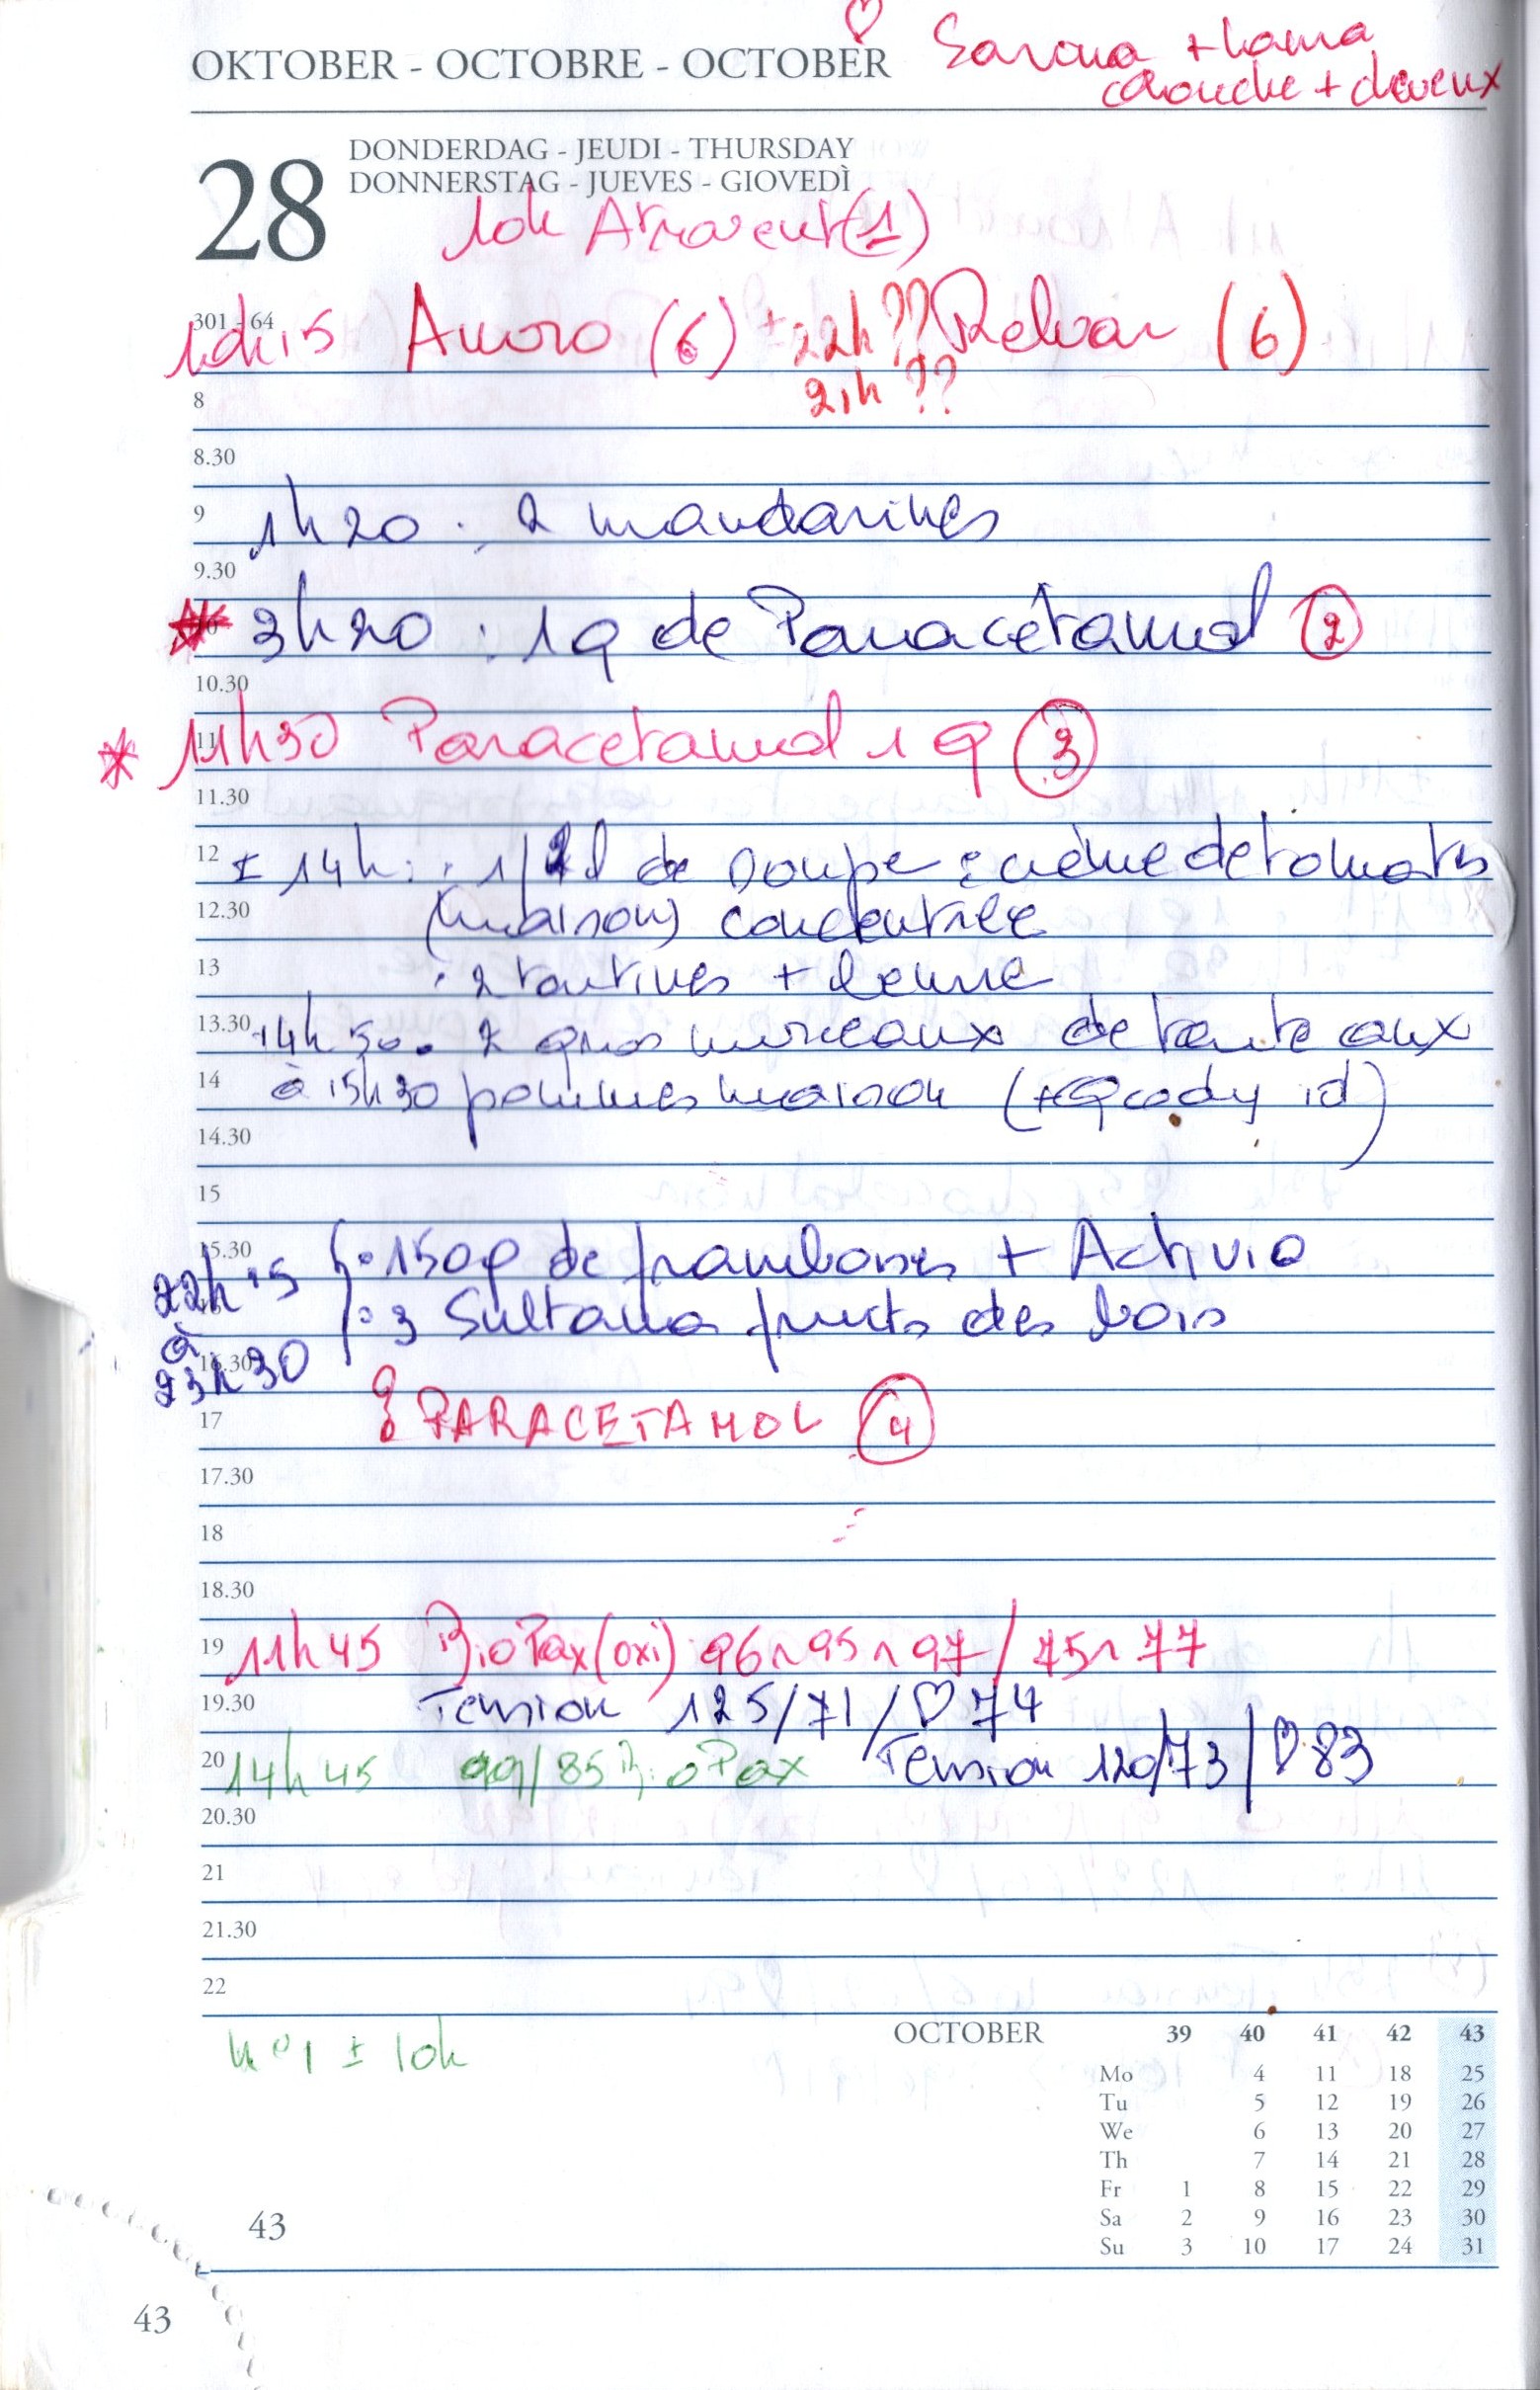 ♡ Savona + Lama
OKTOBER - OCTOBRE - OCTOBER
couche + cheveux
28
DONDERDAG - JEUDI - THURSDAY
DONNERSTAG - JUEVES - GIOVEDÌ
10h Atrovent (1)
301 - 64
10h15 Anoro (6) + 22h ?? Relvar (6)
21h ??
8
8.30
9 1h20 : 2 mandarines
9.30
* 10 3h20 : 1g de Paracétamol (2)
10.30
* 11 11h30 Paracetamol 1 g (3)
11.30
12 ± 14h : 1/2 l de soupe : crème de tomates
12.30 (maison) concentrée
13 : 2 tartines + beurre
13.30 14h50 . 2 gros morceaux de tarte aux
14 à 15h30 pommes maison (+ id)
14.30
15
15.30 22h15 . 150g de framboises + Activia
à . 3 Sultana fruits des bois
16.30 23h30
17 PARACETAMOL (4)
17.30
18
18.30
19 11h45 BioPax (oxi) 96 ^ 95 ^ 97 / 75 ^ 77
19.30 Tension 125/71/♡ 74
20 14h45 99/85 BioPax Tension 120/73/♡ 83
20.30
21
21.30
22
n°1 ± 10h
OCTOBER 39 40 41 42 43
Mo 4 11 18 25
Tu 5 12 19 26
We 6 13 20 27
Th 7 14 21 28
Fr 1 8 15 22 29
Sa 2 9 16 23 30
Su 3 10 17 24 31
43
43